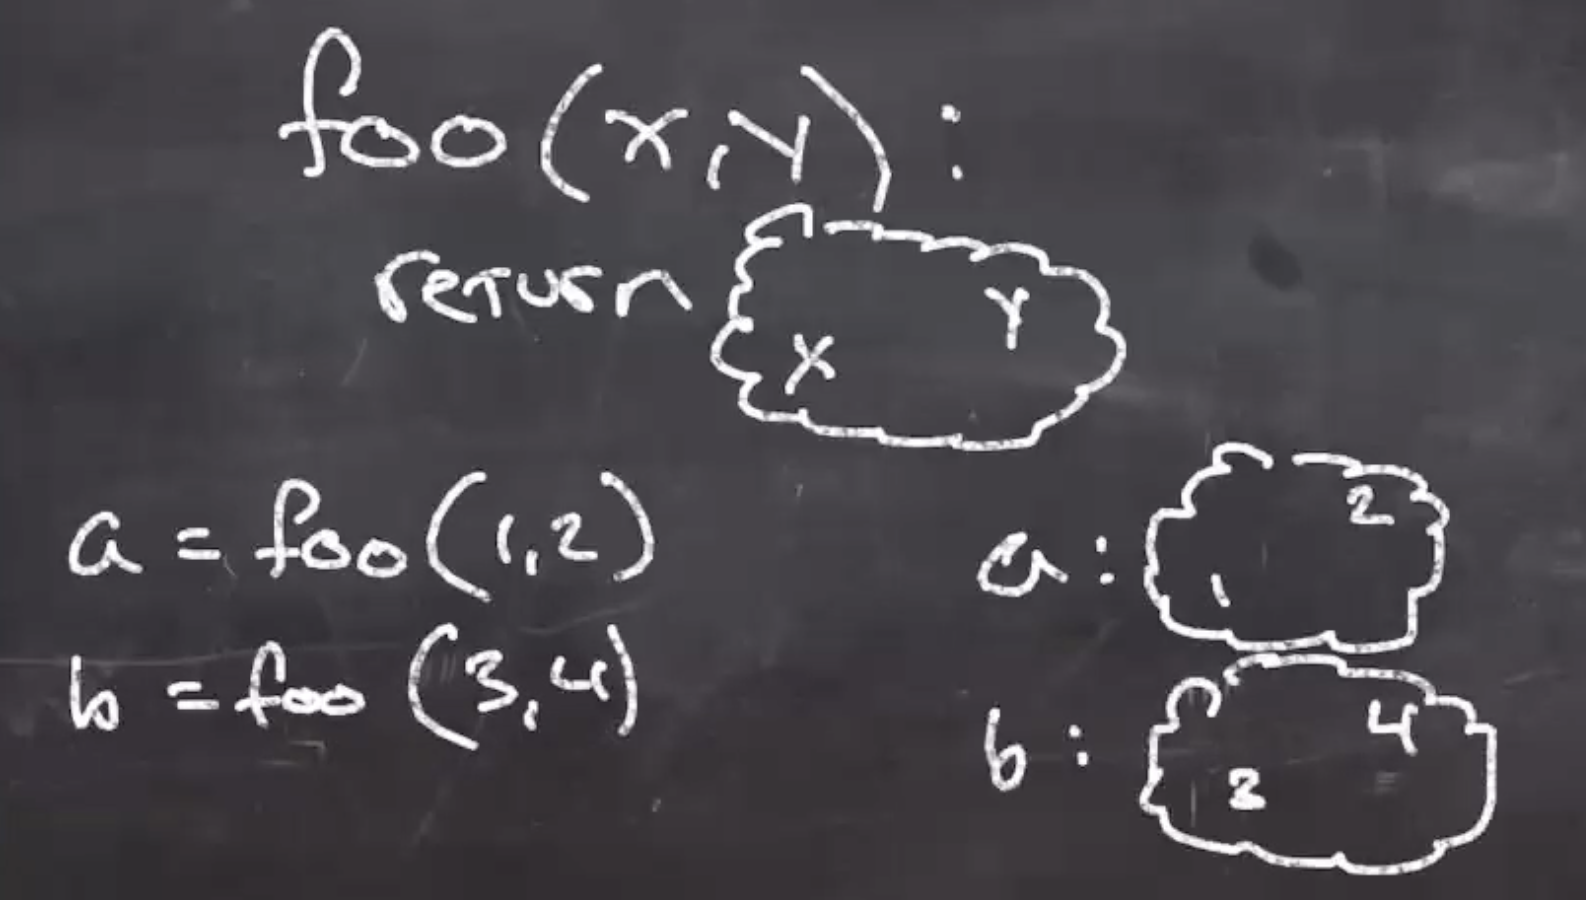 foo(x,y):
return x y
a = foo(1,2)
a: 1 2
b = foo(3,4)
b: 3 4